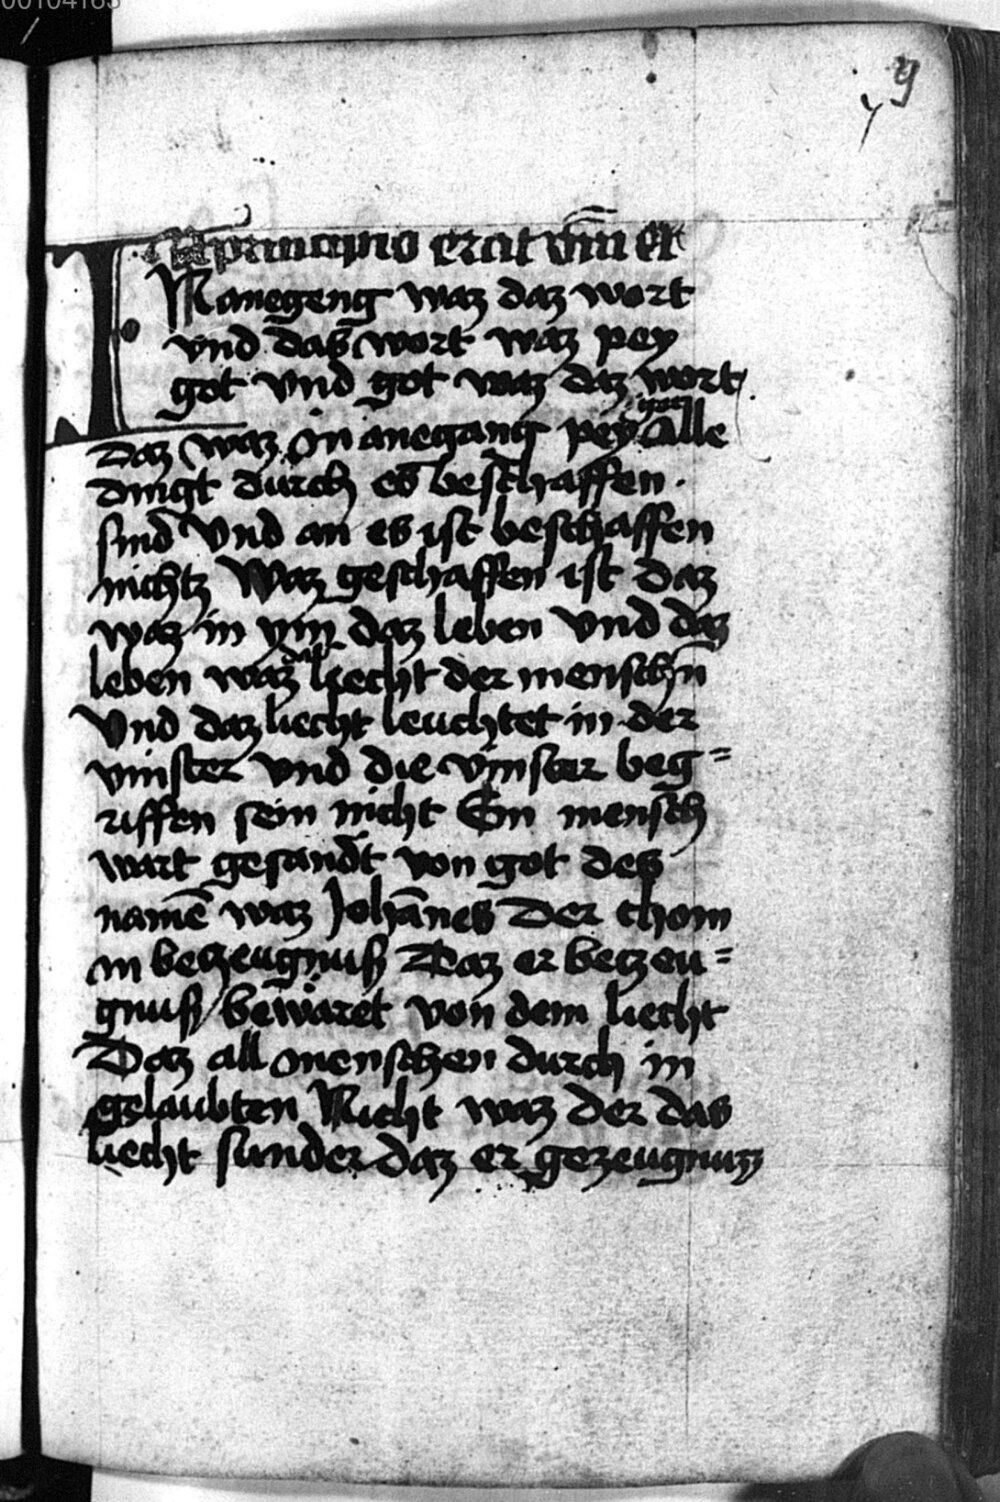 00104163
9
7
In principio erat v̄m et
IN anegeng waz daz wort
vnd das wort waz pey
got vnd got waz daz wort
got
Daz waz in anegang pey Alle
dingt durch es beschaffen .
sind Vnd an es ist beschaffen
nichtz Waz geschaffen ist daz
waz in ym daz leben Vnd daz
daz
leben waz liecht der menschn̄
Vnd daz liecht leuchtet in der
vinster vnd die vinster beg=
riffen sein nicht Ein mensch
wart gesandt von got des
namē waz Johānes Der chom
in beczeugnuß Daz er beczeu=
gnuß bewaret von dem liecht
Daz all menschen durch in
gelaubten Nicht waz der das
liecht sunder daz er gezeugnuzz